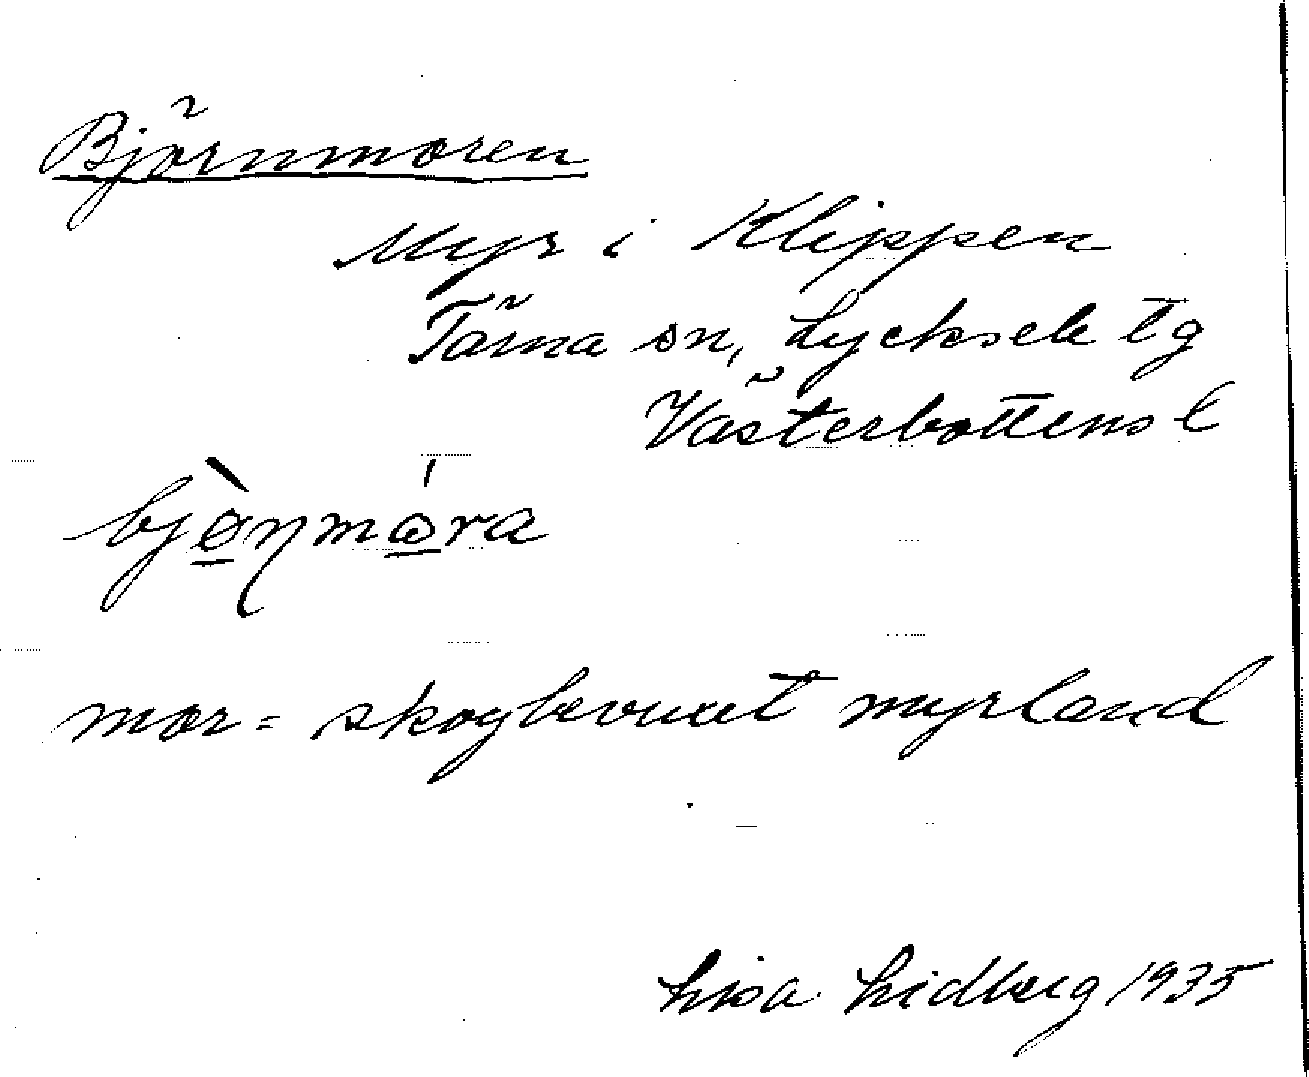 Björnmoren
Myr i Klippen
Tärna sn, Lycksele tg
Västerbottens l
bjɵ̠̀ɳmɷ̠́ra
mor = skogbevuxet myrland
Lisa Lidberg 1935